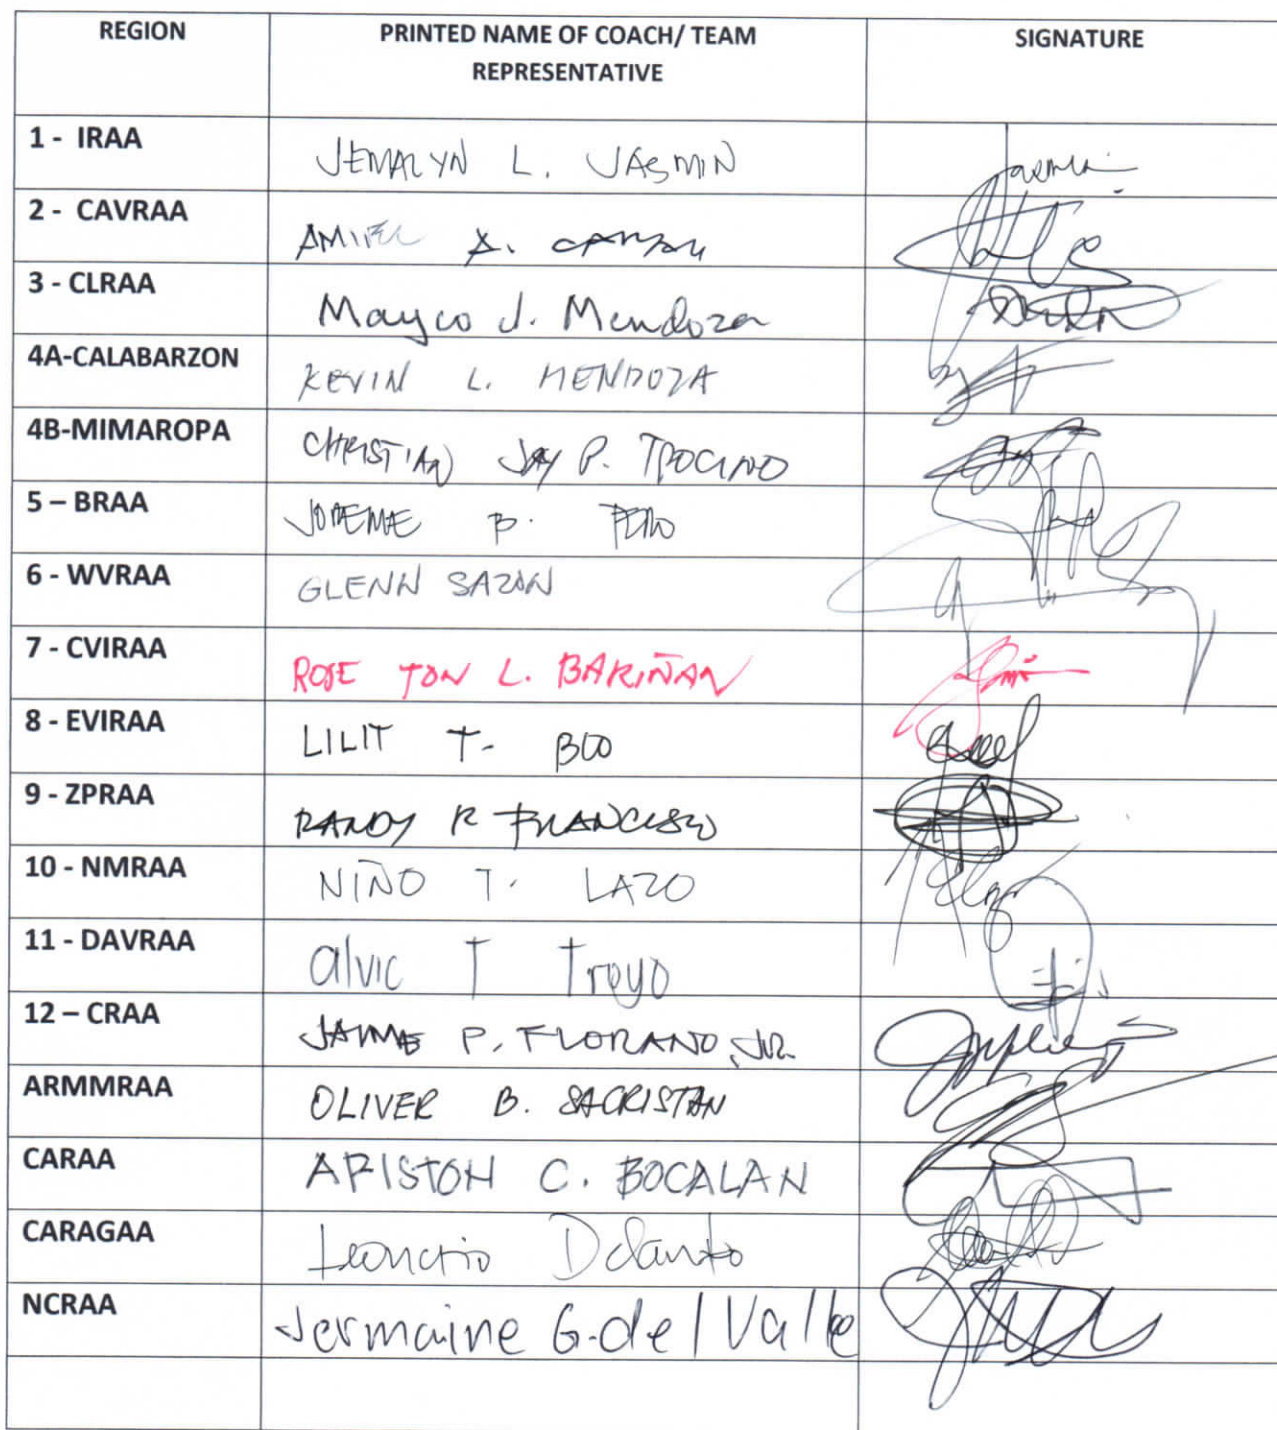 REGION PRINTED NAME OF COACH/ TEAM SIGNATURE
REPRESENTATIVE
1 - IRAA JEMALYN L. JASMIN
2 - CAVRAA A.
3 - CLRAA Mayco J. Mendoza
4A-CALABARZON KEVIN L. MENDOZA
4B-MIMAROPA CHRISTIAN JAY P. TROCINO
5 – BRAA B.
6 - WVRAA GLENN SAZON
7 - CVIRAA ROSE TON L. BARIÑAN
8 - EVIRAA LILIT T. BOO
9 - ZPRAA RANDY R FRANCISCO
10 - NMRAA NIÑO T. LAZO
11 - DAVRAA alvic T Troyo
12 – CRAA JAIME P. FLORANO, JR.
ARMMRAA OLIVER B. SACRISTAN
CARAA ARISTON C. BOCALAN
CARAGAA
NCRAA Jermaine G. del Valle